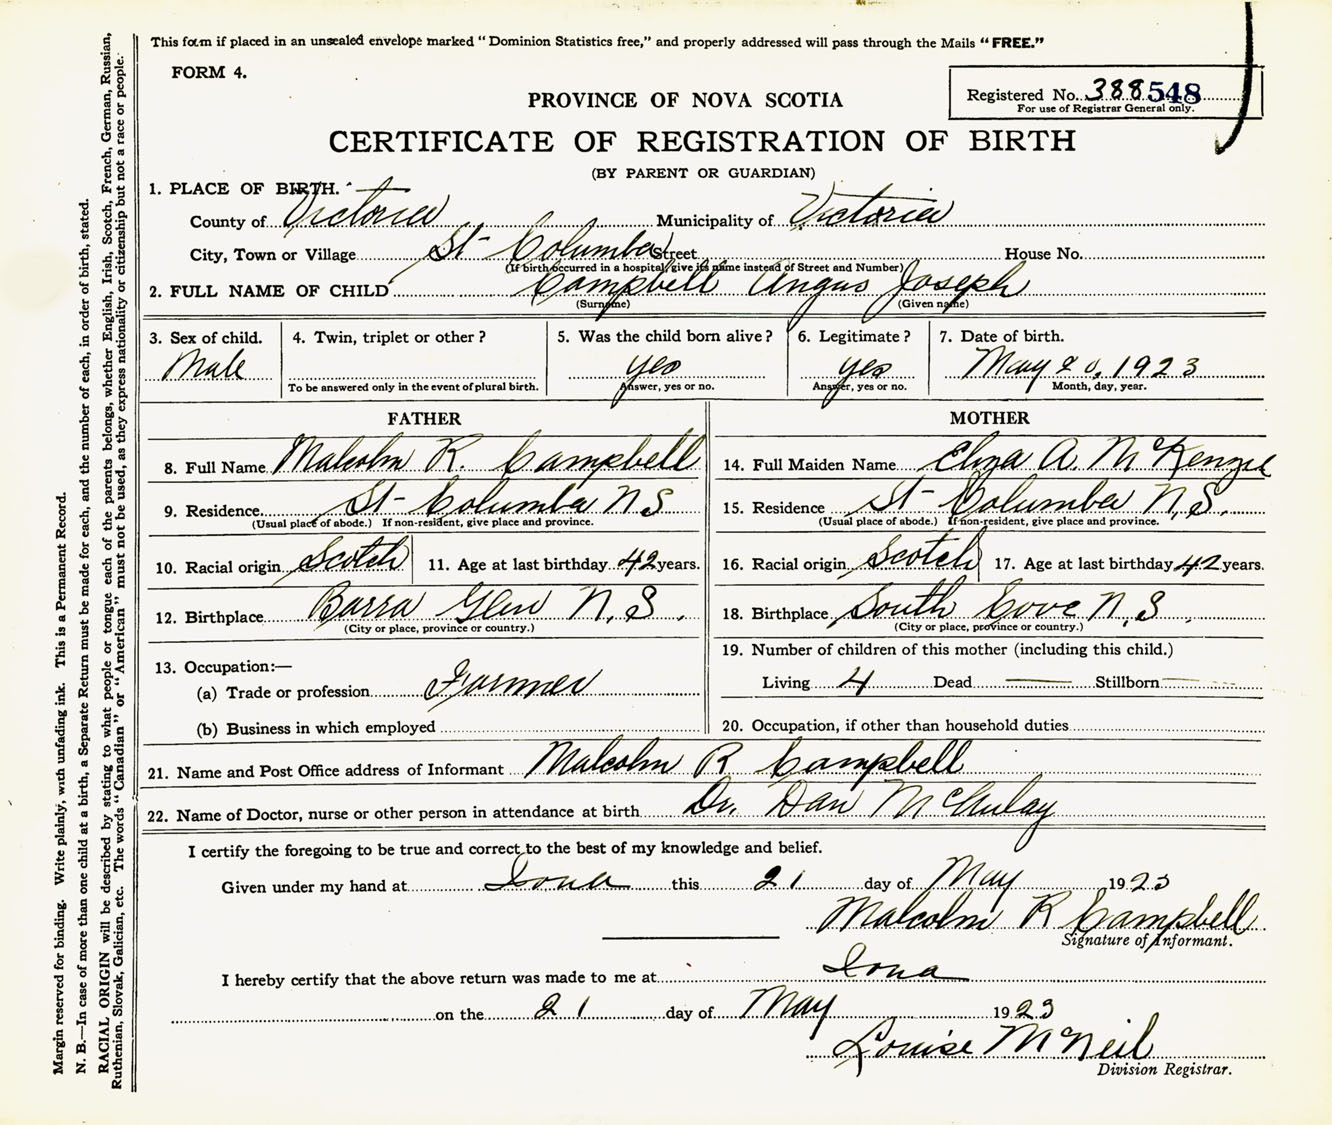 This form if placed in an unsealed envelope marked “Dominion Statistics free,” and properly addressed will pass through the Mails “FREE.”
FORM 4.
Registered No. 388548
For use of Registrar General only.
PROVINCE OF NOVA SCOTIA
CERTIFICATE OF REGISTRATION OF BIRTH
(BY PARENT OR GUARDIAN)
1. PLACE OF BIRTH.
County of Victoria Municipality of Victoria
City, Town or Village St Columba Street House No.
(If birth occurred in a hospital give its name instead of Street and Number)
2. FULL NAME OF CHILD Campbell Angus Joseph
(Surname) (Given name)
3. Sex of child. 4. Twin, triplet or other? 5. Was the child born alive? 6. Legitimate? 7. Date of birth.
Male yes yes May 20, 1923
To be answered only in the event of plural birth. Answer, yes or no. Answer, yes or no. Month, day, year.
FATHER MOTHER
8. Full Name Malcolm R. Campbell 14. Full Maiden Name Eliza A. McKenzie
9. Residence St Columba N S 15. Residence St Columba N,S,
(Usual place of abode.) If non-resident, give place and province. (Usual place of abode.) If non-resident, give place and province.
10. Racial origin Scotch 11. Age at last birthday 42 years. 16. Racial origin Scotch 17. Age at last birthday 42 years.
12. Birthplace Barra Glen N,S, 18. Birthplace South Cove N,S,
(City or place, province or country.) (City or place, province or country.)
13. Occupation:— 19. Number of children of this mother (including this child.)
(a) Trade or profession Farmer Living 4 Dead — Stillborn —
(b) Business in which employed 20. Occupation, if other than household duties
21. Name and Post Office address of Informant Malcolm R Campbell
22. Name of Doctor, nurse or other person in attendance at birth Dr. Dan McAulay
I certify the foregoing to be true and correct to the best of my knowledge and belief.
Given under my hand at Iona this 21 day of May 1923
Malcolm R Campbell
Signature of Informant.
I hereby certify that the above return was made to me at Iona
on the 21 day of May 1923
Louise McNeil
Division Registrar.
Margin reserved for binding. Write plainly, with unfading ink. This is a Permanent Record.
N. B.—In case of more than one child at a birth, a Separate Return must be made for each, and the number of each, in order of birth, stated.
RACIAL ORIGIN will be described by stating to what people or tongue each of the parents belongs, whether English, Irish, Scotch, French, German, Russian,
Ruthenian, Slovak, Galician, etc. The words “Canadian” or “American” must not be used, as they express nationality or citizenship but not a race or people.